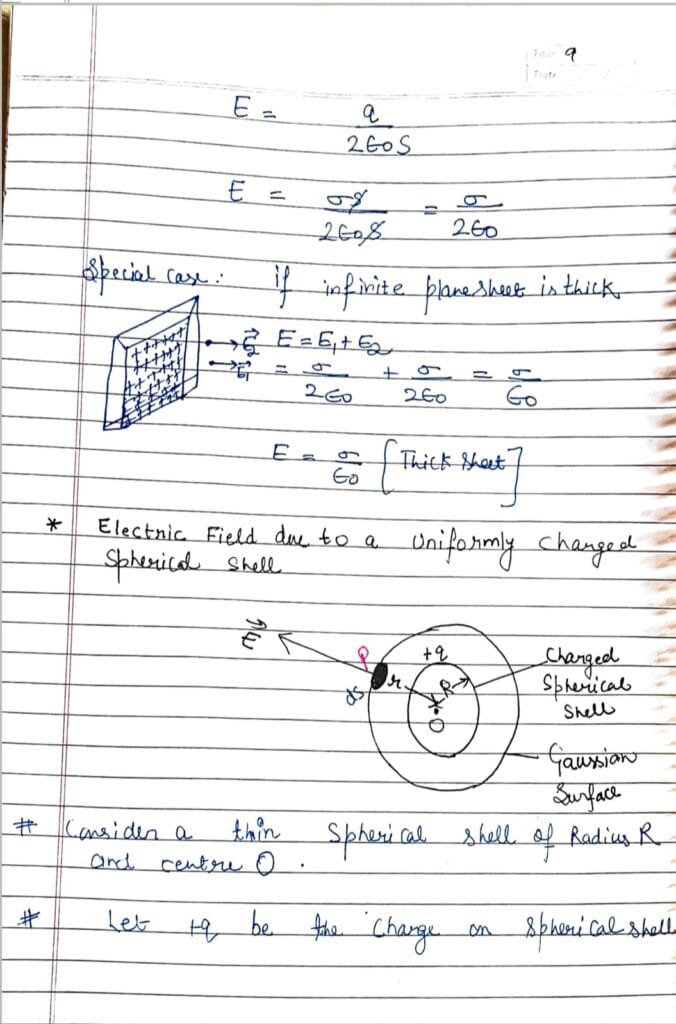 Page 9
Date
E = q / 2ϵ0S
E = σS / 2ϵ0S = σ / 2ϵ0
Special case : if infinite plane sheet is thick
E⃗2 E = E1 + E2
E⃗1 = σ / 2ϵ0 + σ / 2ϵ0 = σ / ϵ0
E = σ / ϵ0 [Thick Sheet]
* Electric Field due to a Uniformly charged
Spherical shell
E⃗
P
+q
ds
r
R
O
Charged
Spherical
Shell
Gaussian
Surface
# Consider a thin Spherical shell of Radius R
and centre O .
# Let +q be the Charge on Spherical shell